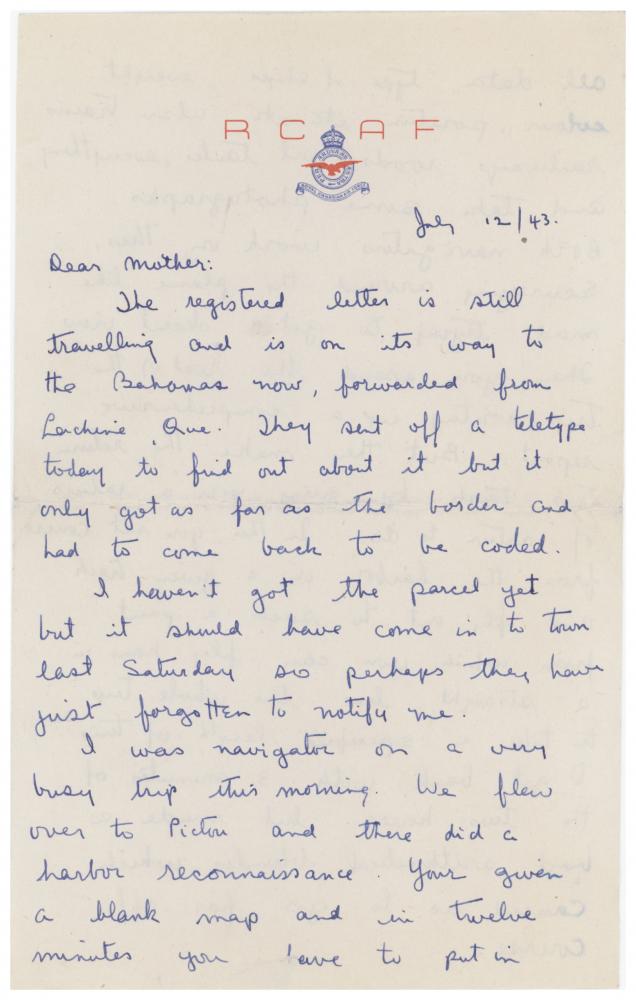 R C A F
PER ARDUA AD ASTRA
ROYAL CANADIAN AIR FORCE
July 12/43.
Dear Mother:
The registered letter is still
travelling and is on its way to
the Bahamas now, forwarded from
Lachine, Que. They sent off a teletype
today to find out about it but it
only got as far as the border and
had to come back to be coded.
I haven't got the parcel yet
but it should have come in to town
last Saturday so perhaps they have
just forgotten to notify me.
I was navigator on a very
busy trip this morning. We flew
over to Pictou and there did a
harbor reconnaissance. Your given
a blank map and in twelve
minutes you have to put in